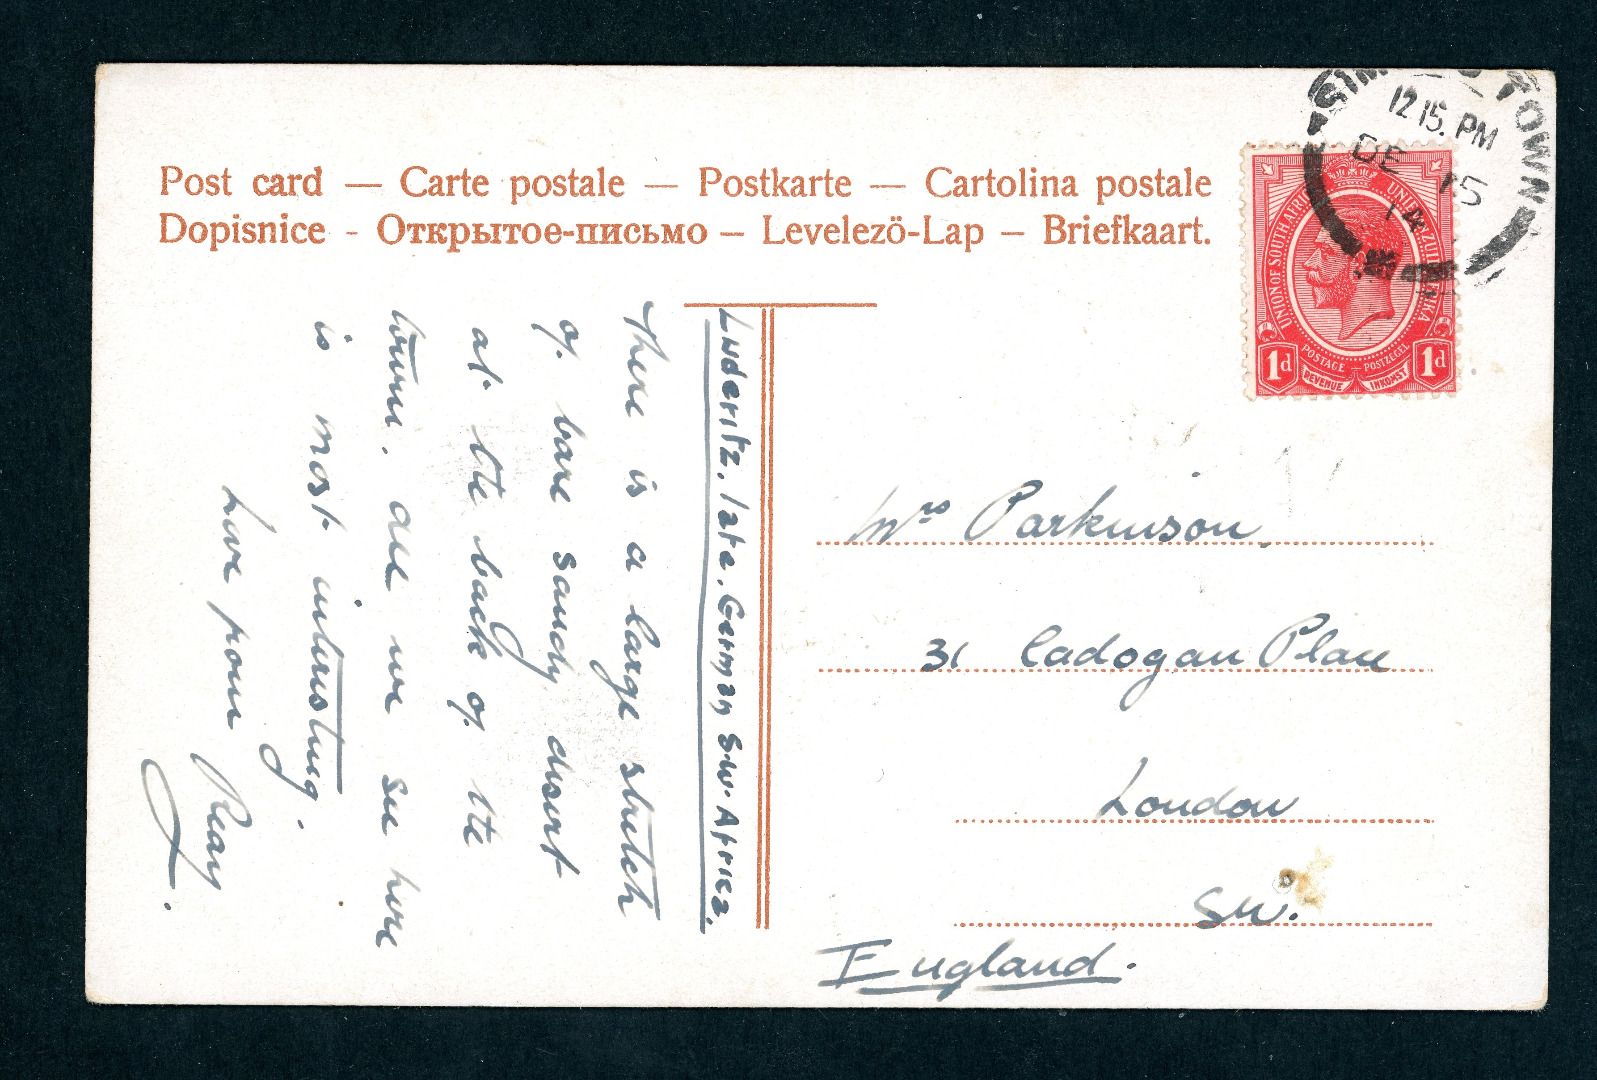 Post card — Carte postale — Postkarte — Cartolina postale
Dopisnice - Открытое-письмо — Levelező-Lap — Briefkaart.
TOWN
12 15. PM
DE 15
14
UNION OF SOUTH AFRICA
UNIE VAN ZUID AFRIKA
POSTAGE — POSTZEGEL
REVENUE INKOMST
1d 1d
Luderitz. late. German S.W. Africa.
There is a large stretch
of bare sandy desert
at the back of the
town. All we see here
is most interesting.
Love from
Mrs Parkinson.
31 Cadogan Place
London
SW.
England.